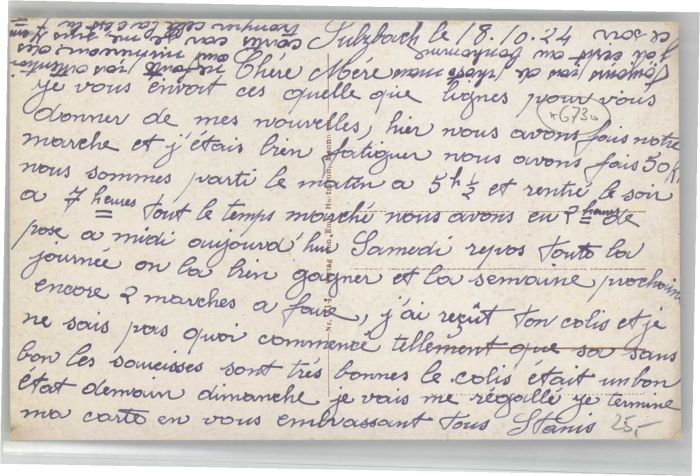 Sulzbach le 18.10.24
Chére Mére
je vous envoit ces quelle que lignes pour vous
donner de mes nouvelles, hier nous avons fais notre
marche et j'étais bien fatiguer nous avons fais 50 K
nous sommes parti le matin a 5h ½ et rentré le soir
a 7 heures tout le temps marché nous avons eu 2 heures de
pose a midi aujourd'hui Samedi repos toute la
journée on la bien gagner et la semaine prochaine
encore 2 marches a faire, j'ai reçût ton colis et je
ne sais pas quoi commencé tellement que sa sans
bon les saucisses sont trés bonnes le colis était un bon
état demain dimanche je vais me régallé je termine
ma carte en vous embrassant tous Stanis
*6730
25,-